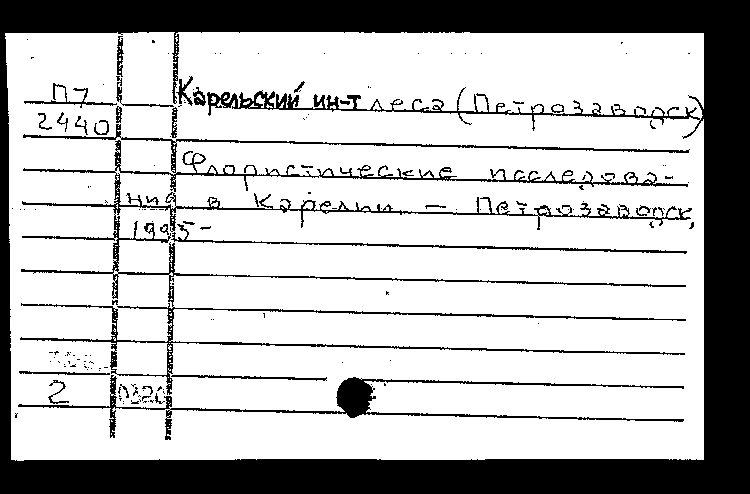 П7
Карельский ин-т леса (Петрозаводск)
2440
Флористические исследова-
ния в Карелии — Петрозаводск,
1995-
2 0320